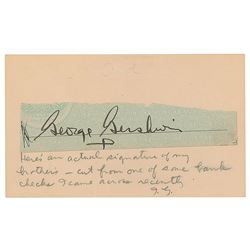 George Gershwin
Here's an actual signature of my
brother's – cut from one of some bank
checks I came across recently
I.G.